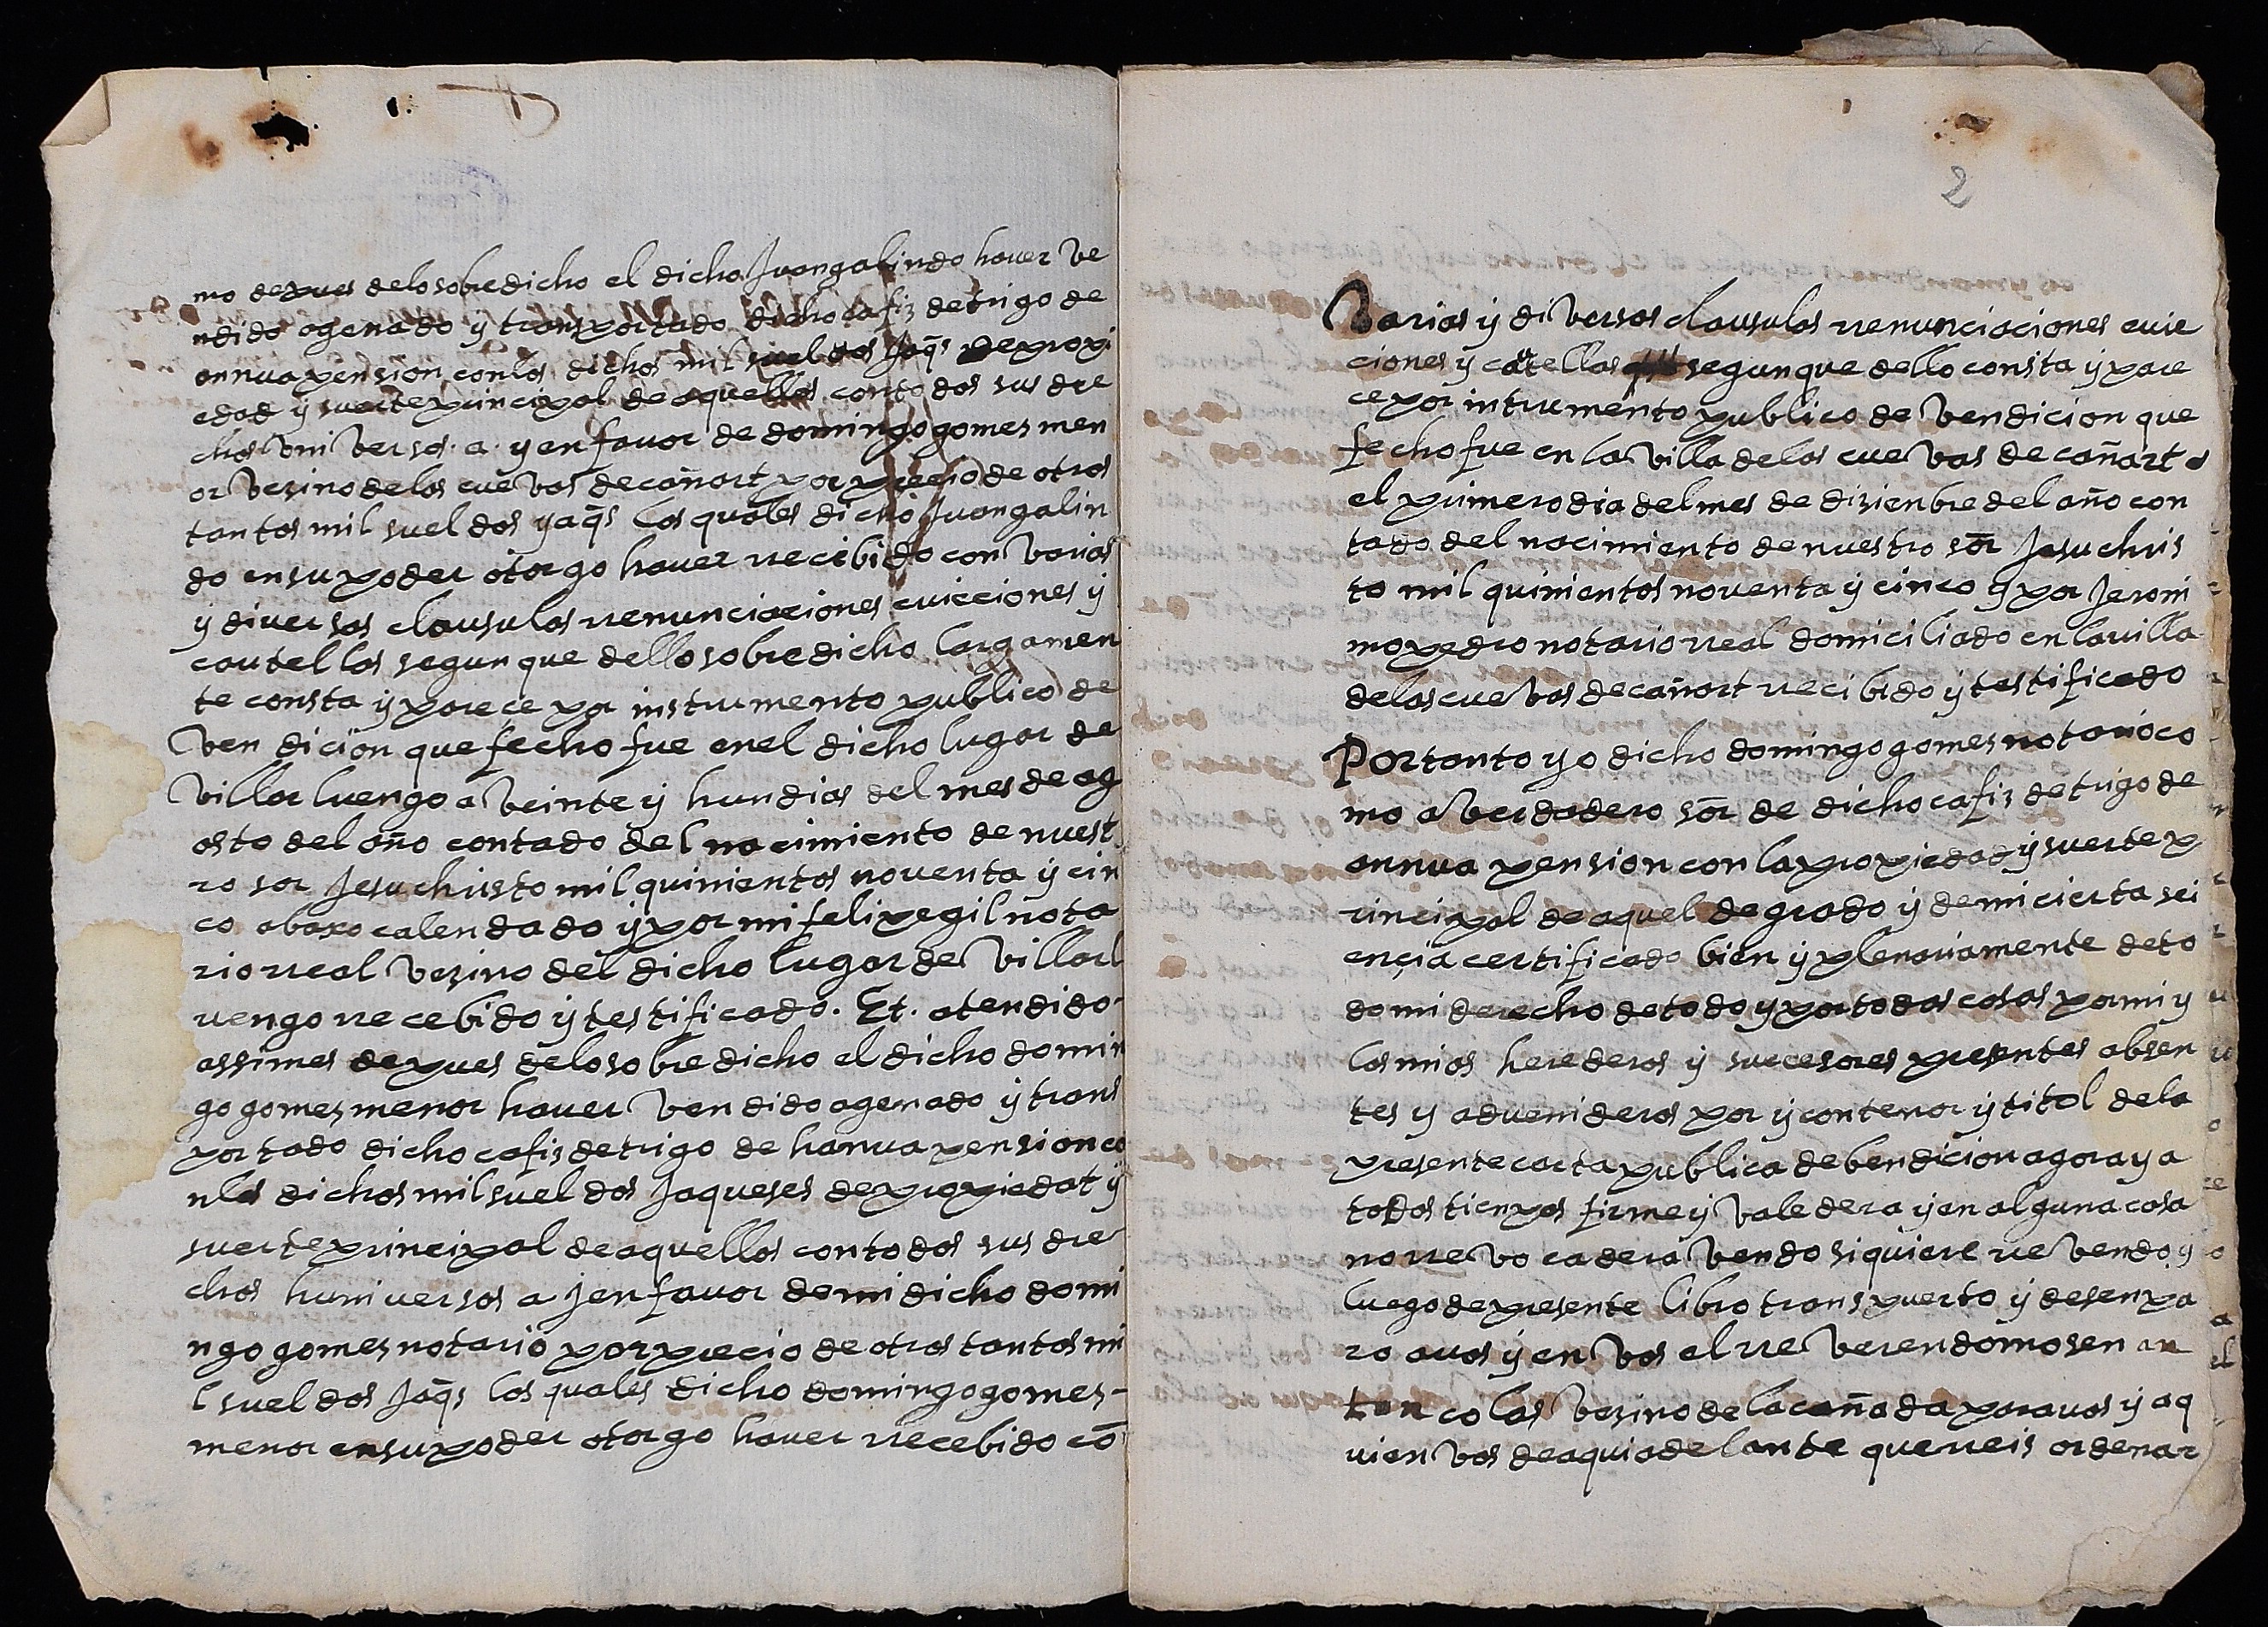 mo depues delo sobre dicho el dicho Juan galindo hauer ve
ndido agenado y transportado dicho cafiz de trigo de
annua pension con los dichos mil sueldos Jaqs de propi
edad y suerte principal de aquellos con todos sus dre
chos vniversos a y en favor de domingo gomez men
or vezino de las cuevas de cañart por precio de otros
tantos mil sueldos yaqs los quales dicho Juan galin
do en su poder otorgo hauer recibido con varias
y diversas clausulas renunciaciones euicciones y
cautellas segun que dello sobre dicho largamen
te consta y pareçe por instrumento publico de
vendicion que fecho fue en el dicho lugar de
villar luengo a veinte y hun dias del mes de ag
osto del año contado del nacimiento de nuest
ro sor Jesuchristo mil quinientos noventa y cin
co abaxo calendado y por mi felipe gil nota
rio real vezino del dicho lugar de villarl
uengo recebido y testificado. Et. atendido
assimes depues delo sobre dicho el dicho domin
go gomez menor hauer vendido agenado y trans
portado dicho cafiz de trigo de hanua pension co
nlos dichos mil sueldos Jaqueses de propiedat y
suerte principal de aquellos con todos sus dre
chos huniversos a j en favor de mi dicho domi
ngo gomez notario por precio de otros tantos mi
l sueldos Jaqs los quales dicho domingo gomez-
menor en su poder otorgo hauer recebido cō
2
Varias y diversas clausulas renunciaciones euic
ciones y catellas segun que dello consta y pare
ce por intrumento publico de vendicion que
fecho fue en la villa de las cuevas de cañart
el primero dia del mes de dizienbre del año con
tado del nacimiento de nuestro sōr Jesuchris
to mil quinientos noventa y cinco y por Jeroni
mo pedro notario real domiciliado en la villa
de las cuevas de cañart recibido y testificado
Por tanto yo dicho domingo gomez notario co
mo a verdadero sōr de dicho cafiz de trigo de
annua pension con la propiedad y suerte p
rincipal de aquel de grado y de mi cierta sci
ençia certificado bien y plenariamente de to
do mi derecho de todo y por todas cosas por mi y
los mios herederos y sucesores presentes absen
tes y advenideros por y con tenor y titol dela
presente carta publica de bendicion agora y a
todos tienpos firme y valedera y en alguna cosa
no revocadera vendo siquiere revendo y
luego de presente libro transpuerto y desenpa
ro a vos y en vos el reverendo mosen an
ton colas vezino de la cañada para vos y a q
uien vos de aqui adelante querreis ordenar